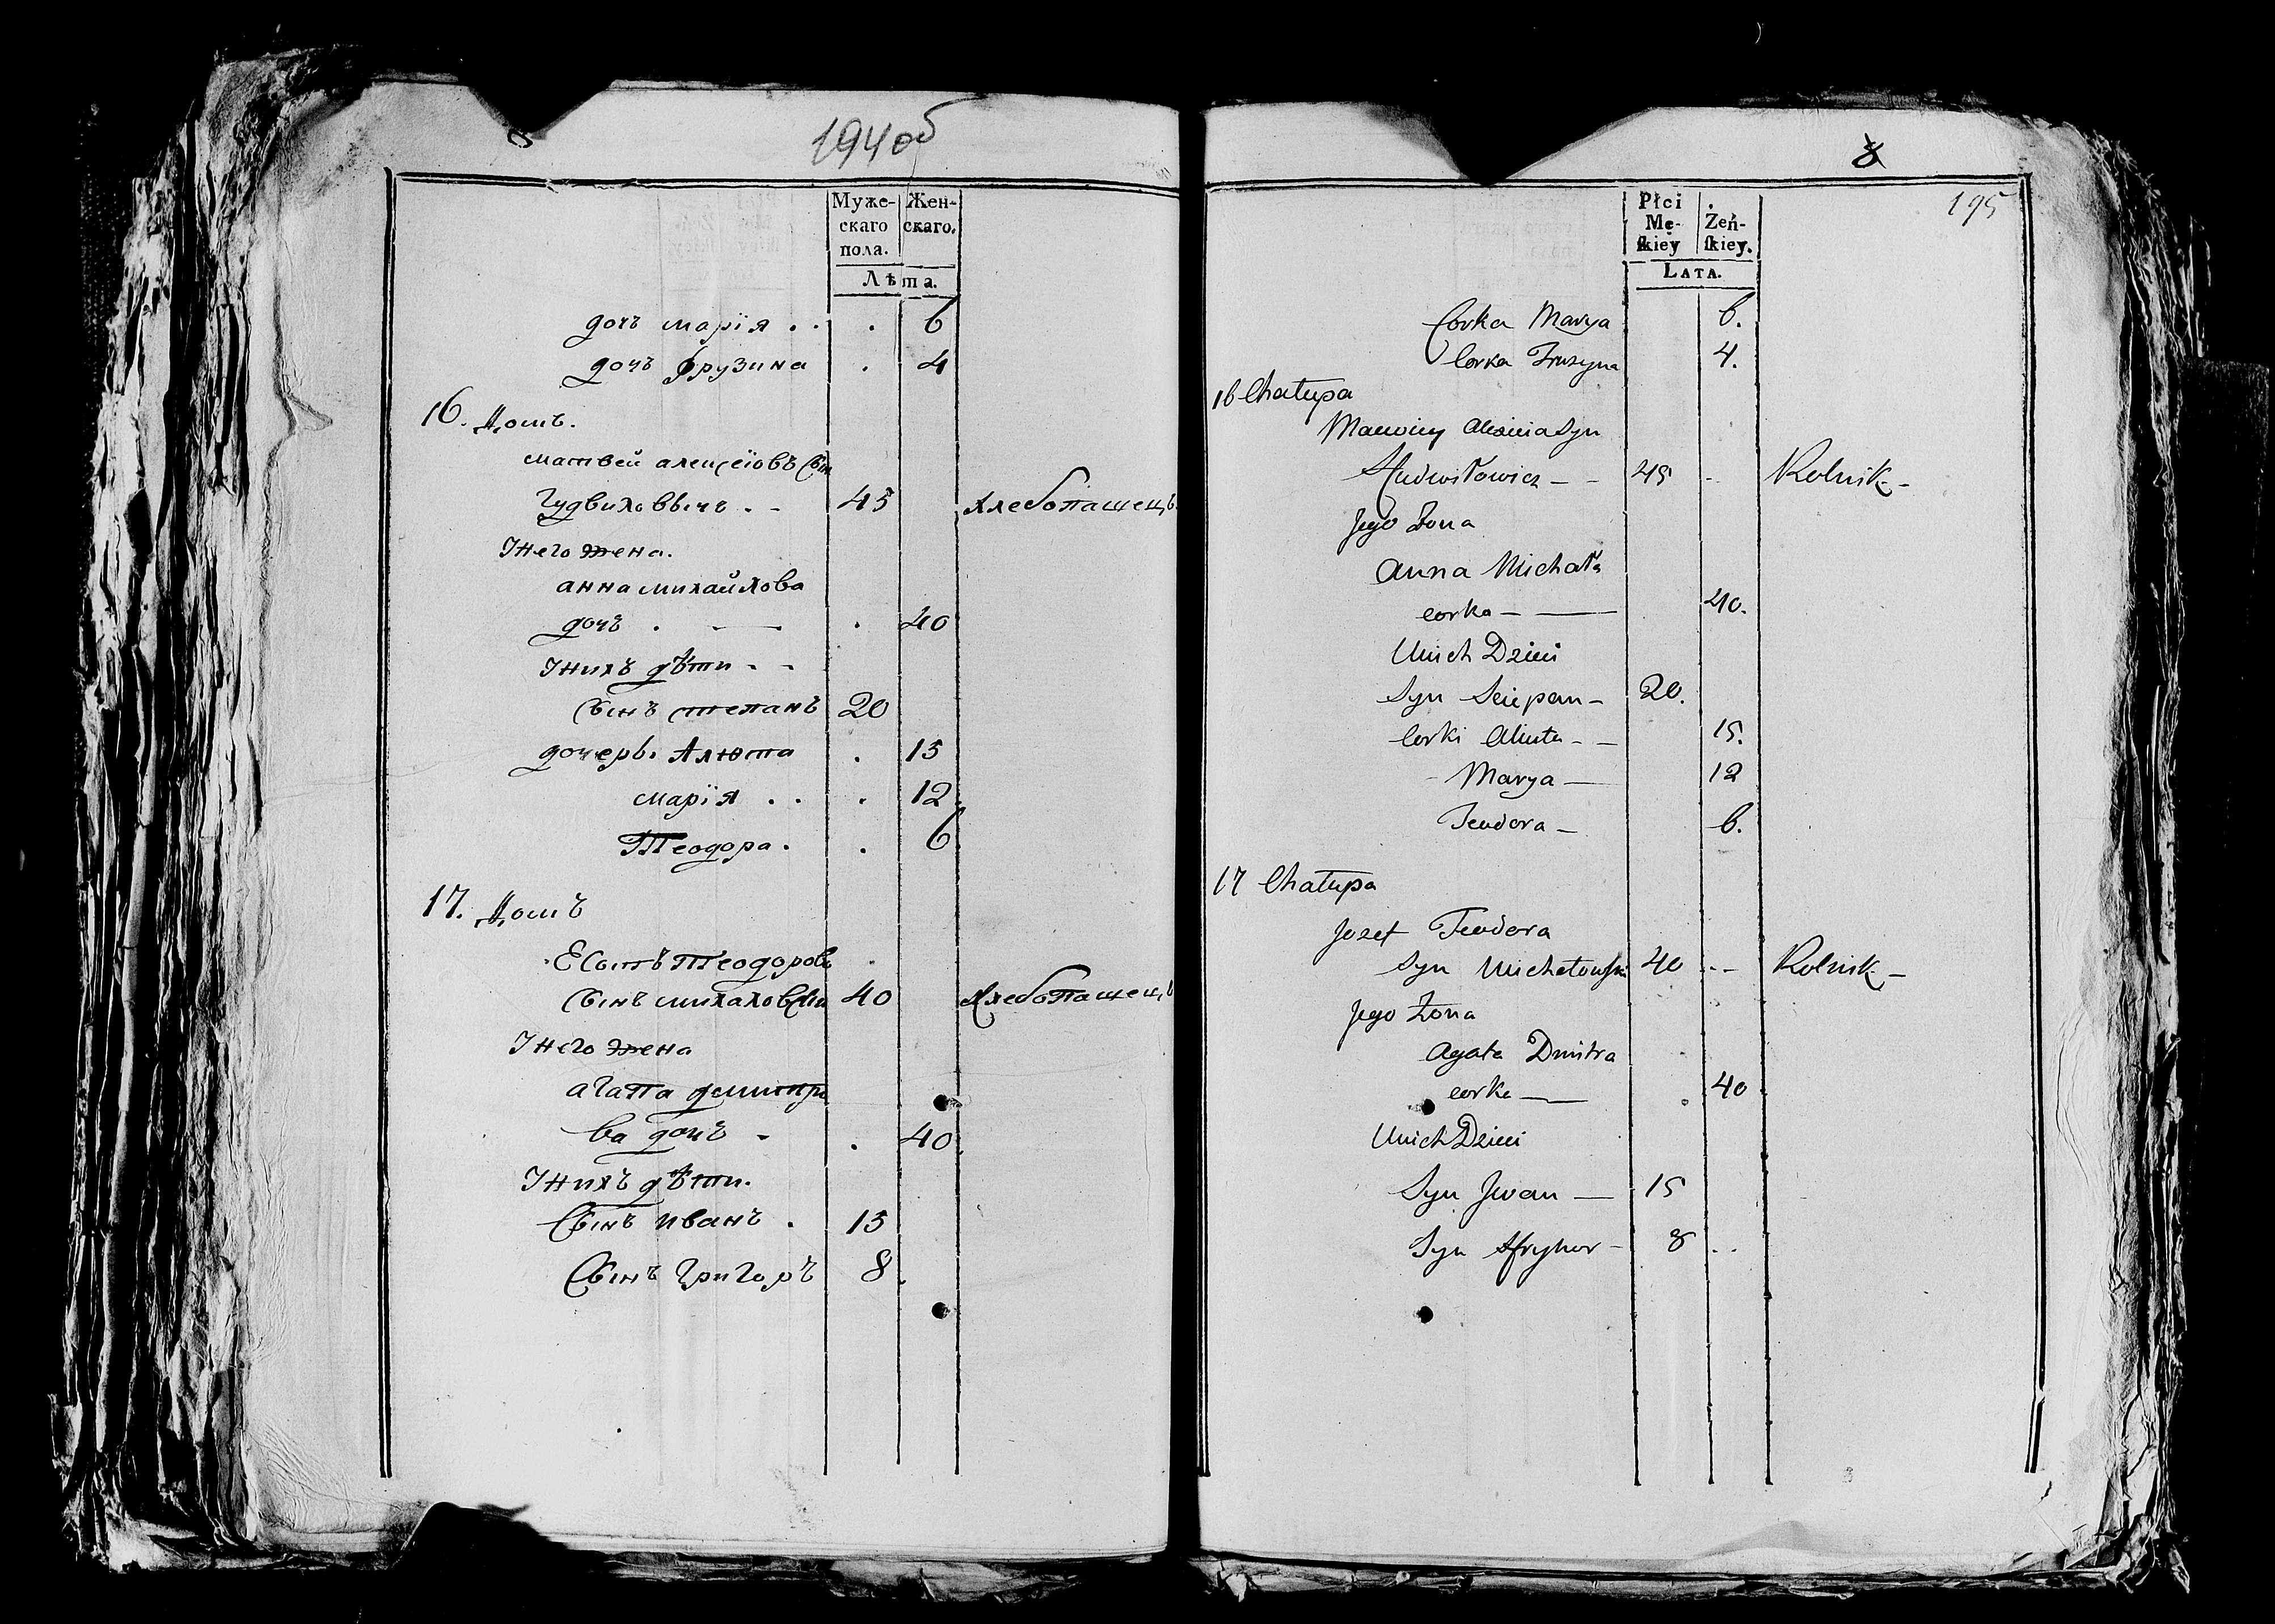 194об
Муже-
скаго
пола.
Жен-
скаго.
Лѣта.
дочъ марїя . . . 6
дочъ фрузина . 4
16. Домъ.
матвей алексеïовъ Сын
Гудвиловвичъ . - 45 Хлебопашецъ
Їнего жена.
анна михайлова
дочъ . - — . 40
Їнихъ дѣти - -
Сынъ степанъ 20
дочеры Алюта . 15
марїя . . . 12
Теодора . . 6
17. Домъ
Есыпъ Теодоровъ
Сынъ михаловски 40 Хлебопашецъ
Їнего жена
агата демитро
ва дочъ - . 40
Їнихъ дѣти.
Сынъ иванъ . 15
Сынъ Григоръ 8
8
195
Płci
Mę-
ſkiey
Żeń-
ſkiey.
LATA.
Corka Marya 6.
Corka Fruzyna 4.
16 Chatupa
Alexieia Syn
Hudwiłowicz - - 45 - - Rolnik -
Jego Żona
Anna Michała
corka — — 40.
Unich Dzieci
Syn Sciepan - 20.
Corki Aliuta - - 15.
- Marya — 12
Teodora - 6.
17 Chatupa
Jozef Teodora
Syn Michałowski 40 - - Rolnik -
Jego Żona
Agata Dmitra
corka — 40
Unich Dzieci
Syn Jwan — 15
Syn Hryhor - 8 . .